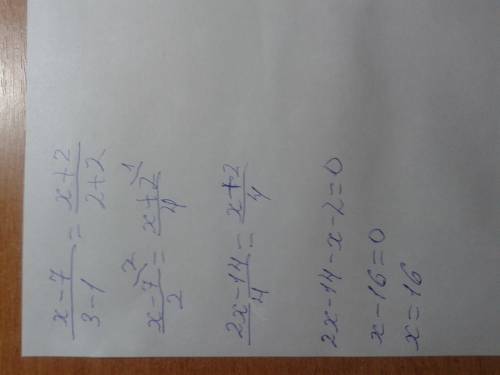 x-7/3-1 = x+2/2+2
x-7²/2 = x+2¹/4
2x-14/4 = x+2/4
2x-14-x-2=0
x-16=0
x=16